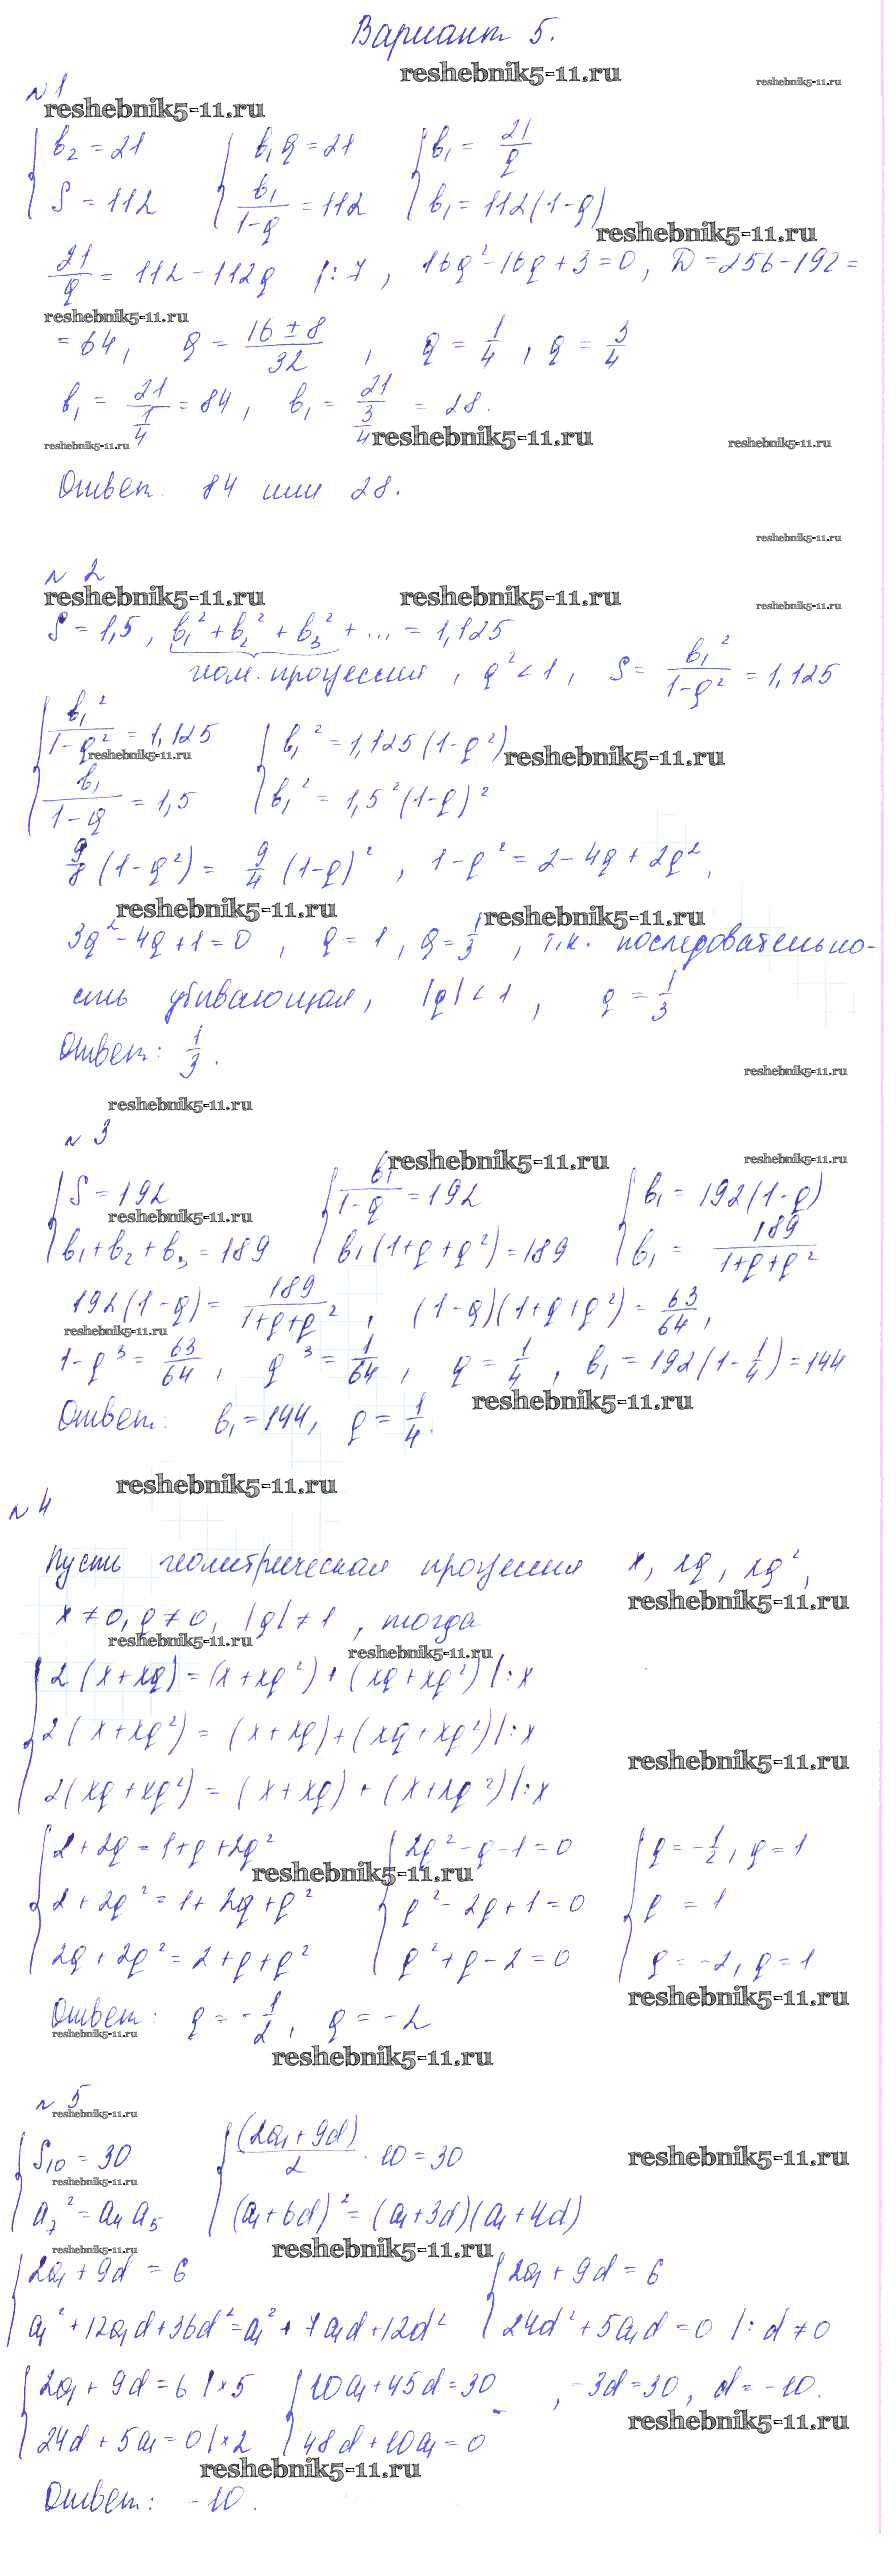 Вариант 5.
reshebnik5-11.ru
reshebnik5-11.ru
№1
reshebnik5-11.ru
{ b₂ = 21   { b₁q = 21   { b₁ = 21/q
{ S = 112   { b₁/(1-q) = 112   { b₁ = 112(1-q)
reshebnik5-11.ru
21/q = 112 - 112q |:7 , 16q² - 16q + 3 = 0, D = 256 - 192 =
reshebnik5-11.ru
= 64, q = (16 ± 8)/32 , q = 1/4 , q = 3/4
b₁ = 21/(1/4) = 84, b₁ = 21/(3/4) = 28.
reshebnik5-11.ru reshebnik5-11.ru reshebnik5-11.ru
Ответ: 84 или 28.
reshebnik5-11.ru
№ 2
reshebnik5-11.ru reshebnik5-11.ru reshebnik5-11.ru
S = 1,5, b₁² + b₂² + b₃² + ... = 1,125
геом. прогрессия, q² < 1, S = b₁²/(1-q²) = 1,125
{ b₁²/(1-q²) = 1,125   { b₁² = 1,125(1-q²)
reshebnik5-11.ru reshebnik5-11.ru
{ b₁/(1-q) = 1,5   { b₁² = 1,5²(1-q)²
9/8 (1-q²) = 9/4 (1-q)², 1-q² = 2-4q+2q²,
reshebnik5-11.ru reshebnik5-11.ru
3q² - 4q + 1 = 0, q = 1, q = 1/3, т.к. последовательно-
сть убывающая, |q| < 1, q = 1/3
Ответ: 1/3.
reshebnik5-11.ru
reshebnik5-11.ru
№ 3
reshebnik5-11.ru reshebnik5-11.ru
{ S = 192   { b₁/(1-q) = 192   { b₁ = 192(1-q)
reshebnik5-11.ru
{ b₁+b₂+b₃ = 189   { b₁(1+q+q²) = 189   { b₁ = 189/(1+q+q²)
192(1-q) = 189/(1+q+q²), (1-q)(1+q+q²) = 63/64,
reshebnik5-11.ru
1-q³ = 63/64, q³ = 1/64, q = 1/4, b₁ = 192(1-1/4) = 144
reshebnik5-11.ru
Ответ: b₁ = 144, q = 1/4.
reshebnik5-11.ru
№4
Пусть геометрическая прогрессия x, xq, xq²,
reshebnik5-11.ru
x ≠ 0, q ≠ 0, |q| ≠ 1, тогда
reshebnik5-11.ru reshebnik5-11.ru
{ 2(x+xq) = (x+xq²) + (xq+xq²) |:x
{ 2(x+xq²) = (x+xq)+(xq+xq²) |:x
reshebnik5-11.ru
{ 2(xq+xq²) = (x+xq) + (x+xq²) |:x
{ 2+2q = 1+q+2q²   { 2q²-q-1=0   { q = -1/2, q = 1
reshebnik5-11.ru
{ 2+2q² = 1+2q+q²   { q²-2q+1=0   { q = 1
{ 2q+2q² = 2+q+q²   { q²+q-2=0   { q = -2, q = 1
reshebnik5-11.ru
Ответ: q = -1/2, q = -2
reshebnik5-11.ru
reshebnik5-11.ru
№ 5
reshebnik5-11.ru
{ S₁₀ = 30   { (2a₁+9d)/2 · 10 = 30
reshebnik5-11.ru
reshebnik5-11.ru
{ a₇² = a₄ a₅   { (a₁+6d)² = (a₁+3d)(a₁+4d)
reshebnik5-11.ru reshebnik5-11.ru
{ 2a₁+9d = 6   { 2a₁+9d = 6
{ a₁²+12a₁d+36d² = a₁²+7a₁d+12d²   { 24d²+5a₁d = 0 |:d≠0
{ 2a₁+9d = 6 |×5   { 10a₁+45d = 30 , -3d = 30, d = -10.
reshebnik5-11.ru
{ 24d+5a₁ = 0 |×2   { 48d+10a₁ = 0
reshebnik5-11.ru
Ответ: -10.